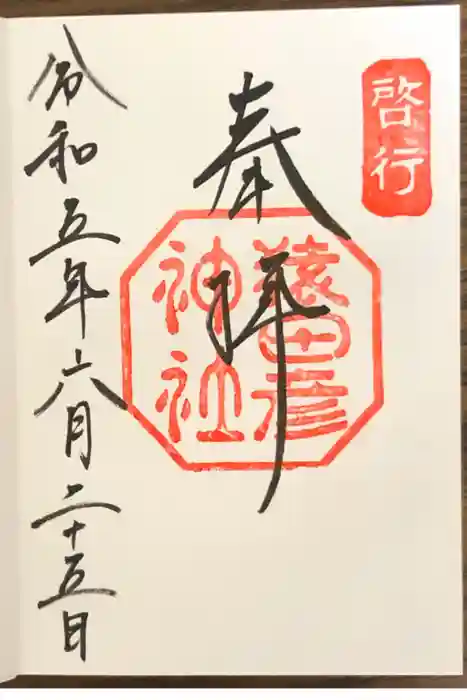 啓行
奉拝
猿田彦
神社
令和五年六月二十五日